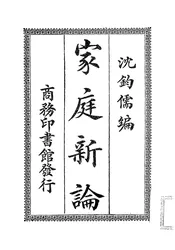 沈鈞儒編
家庭新論
商務印書館發行